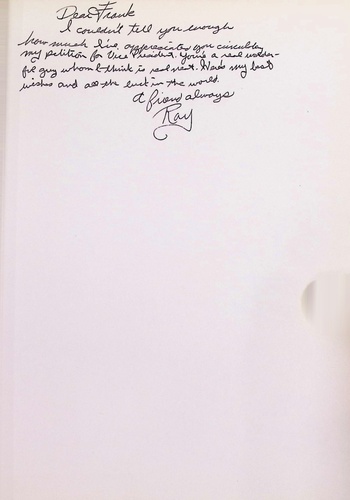 Dear Frank
I couldn't tell you enough
how much I've appreciated you circulating
my petition for Vice President. You're a real wonder-
ful guy whom I think is real neat. Here's my best
wishes and all the luck in the world.
A friend always
Ray